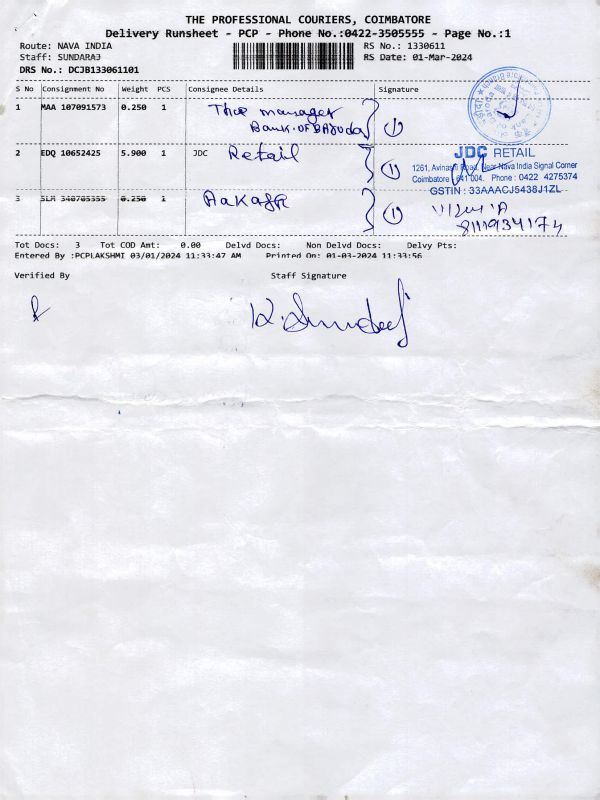 THE PROFESSIONAL COURIERS, COIMBATORE
Delivery Runsheet - PCP - Phone No.:0422-3505555 - Page No.:1
Route: NAVA INDIA RS No.: 1330611
Staff: SUNDARAJ RS Date: 01-Mar-2024
DRS No.: DCJB133061101
S No Consignment No Weight PCS Consignee Details Signature
1 MAA 107091573 0.250 1 The manager
Bank. OF BAroda 1
2 EDQ 10652425 5.900 1 JDC Retail 1
JDC RETAIL
1261, Avinashi Road, Near Nava India Signal Corner
Coimbatore - 641 004. Phone : 0422 4275374
GSTIN : 33AAACJ5438J1ZL
3 SLM 340705355 0.250 1 1
8111934174
Tot Docs: 3 Tot COD Amt: 0.00 Delvd Docs: Non Delvd Docs: Delvy Pts:
Entered By :PCPLAKSHMI 03/01/2024 11:33:47 AM Printed On: 01-03-2024 11:33:56
Verified By Staff Signature